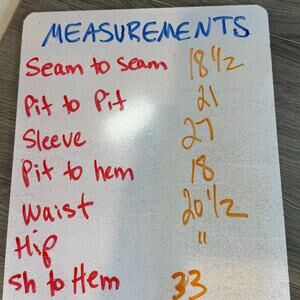 MEASUREMENTS
Seam to seam 18 1/2
Pit to Pit 21
Sleeve 27
Pit to hem 18
Waist 20 1/2
Hip "
Sh to Hem 33